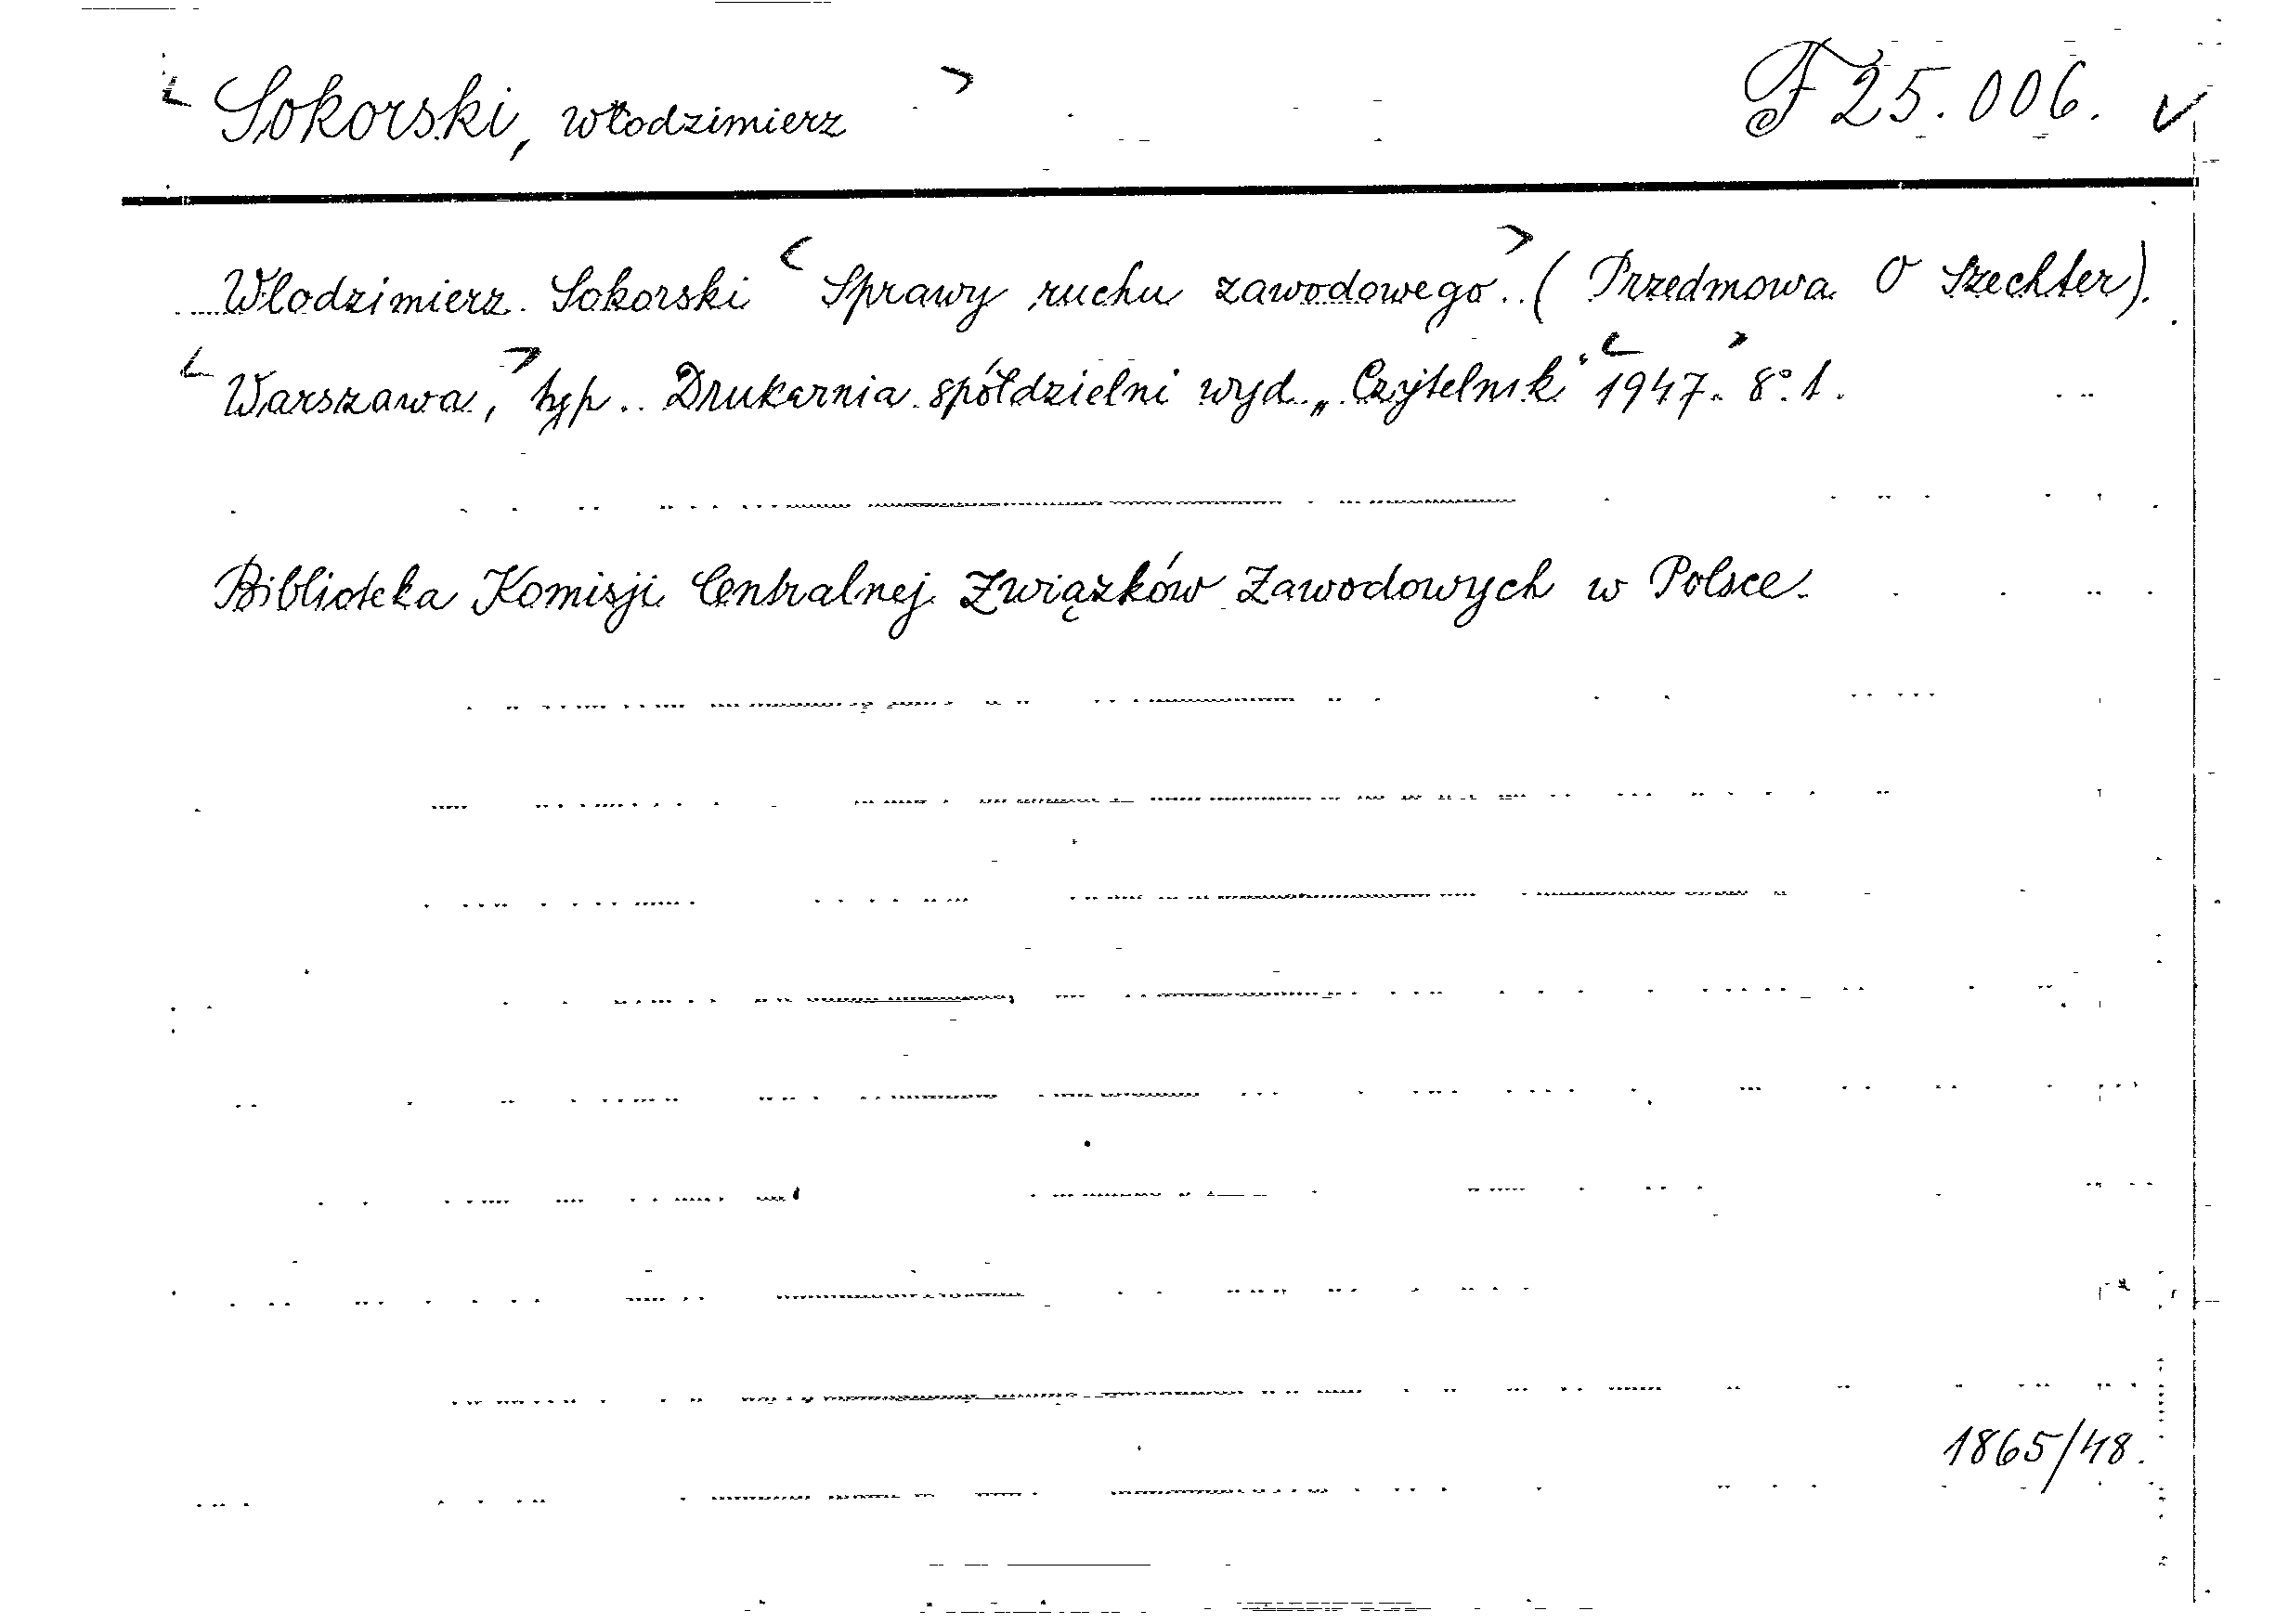 < Sokorski, Włodzimierz > F 25.006. ✓
Włodzimierz Sokorski < Sprawy ruchu zawodowego. > (Przedmowa O Szechter).
< Warszawa, > typ. Drukarnia spółdzielni wyd. „Czytelnik" < 1947. > 8° 1.
Biblioteka Komisji Centralnej Związków Zawodowych w Polsce.
1865/48.